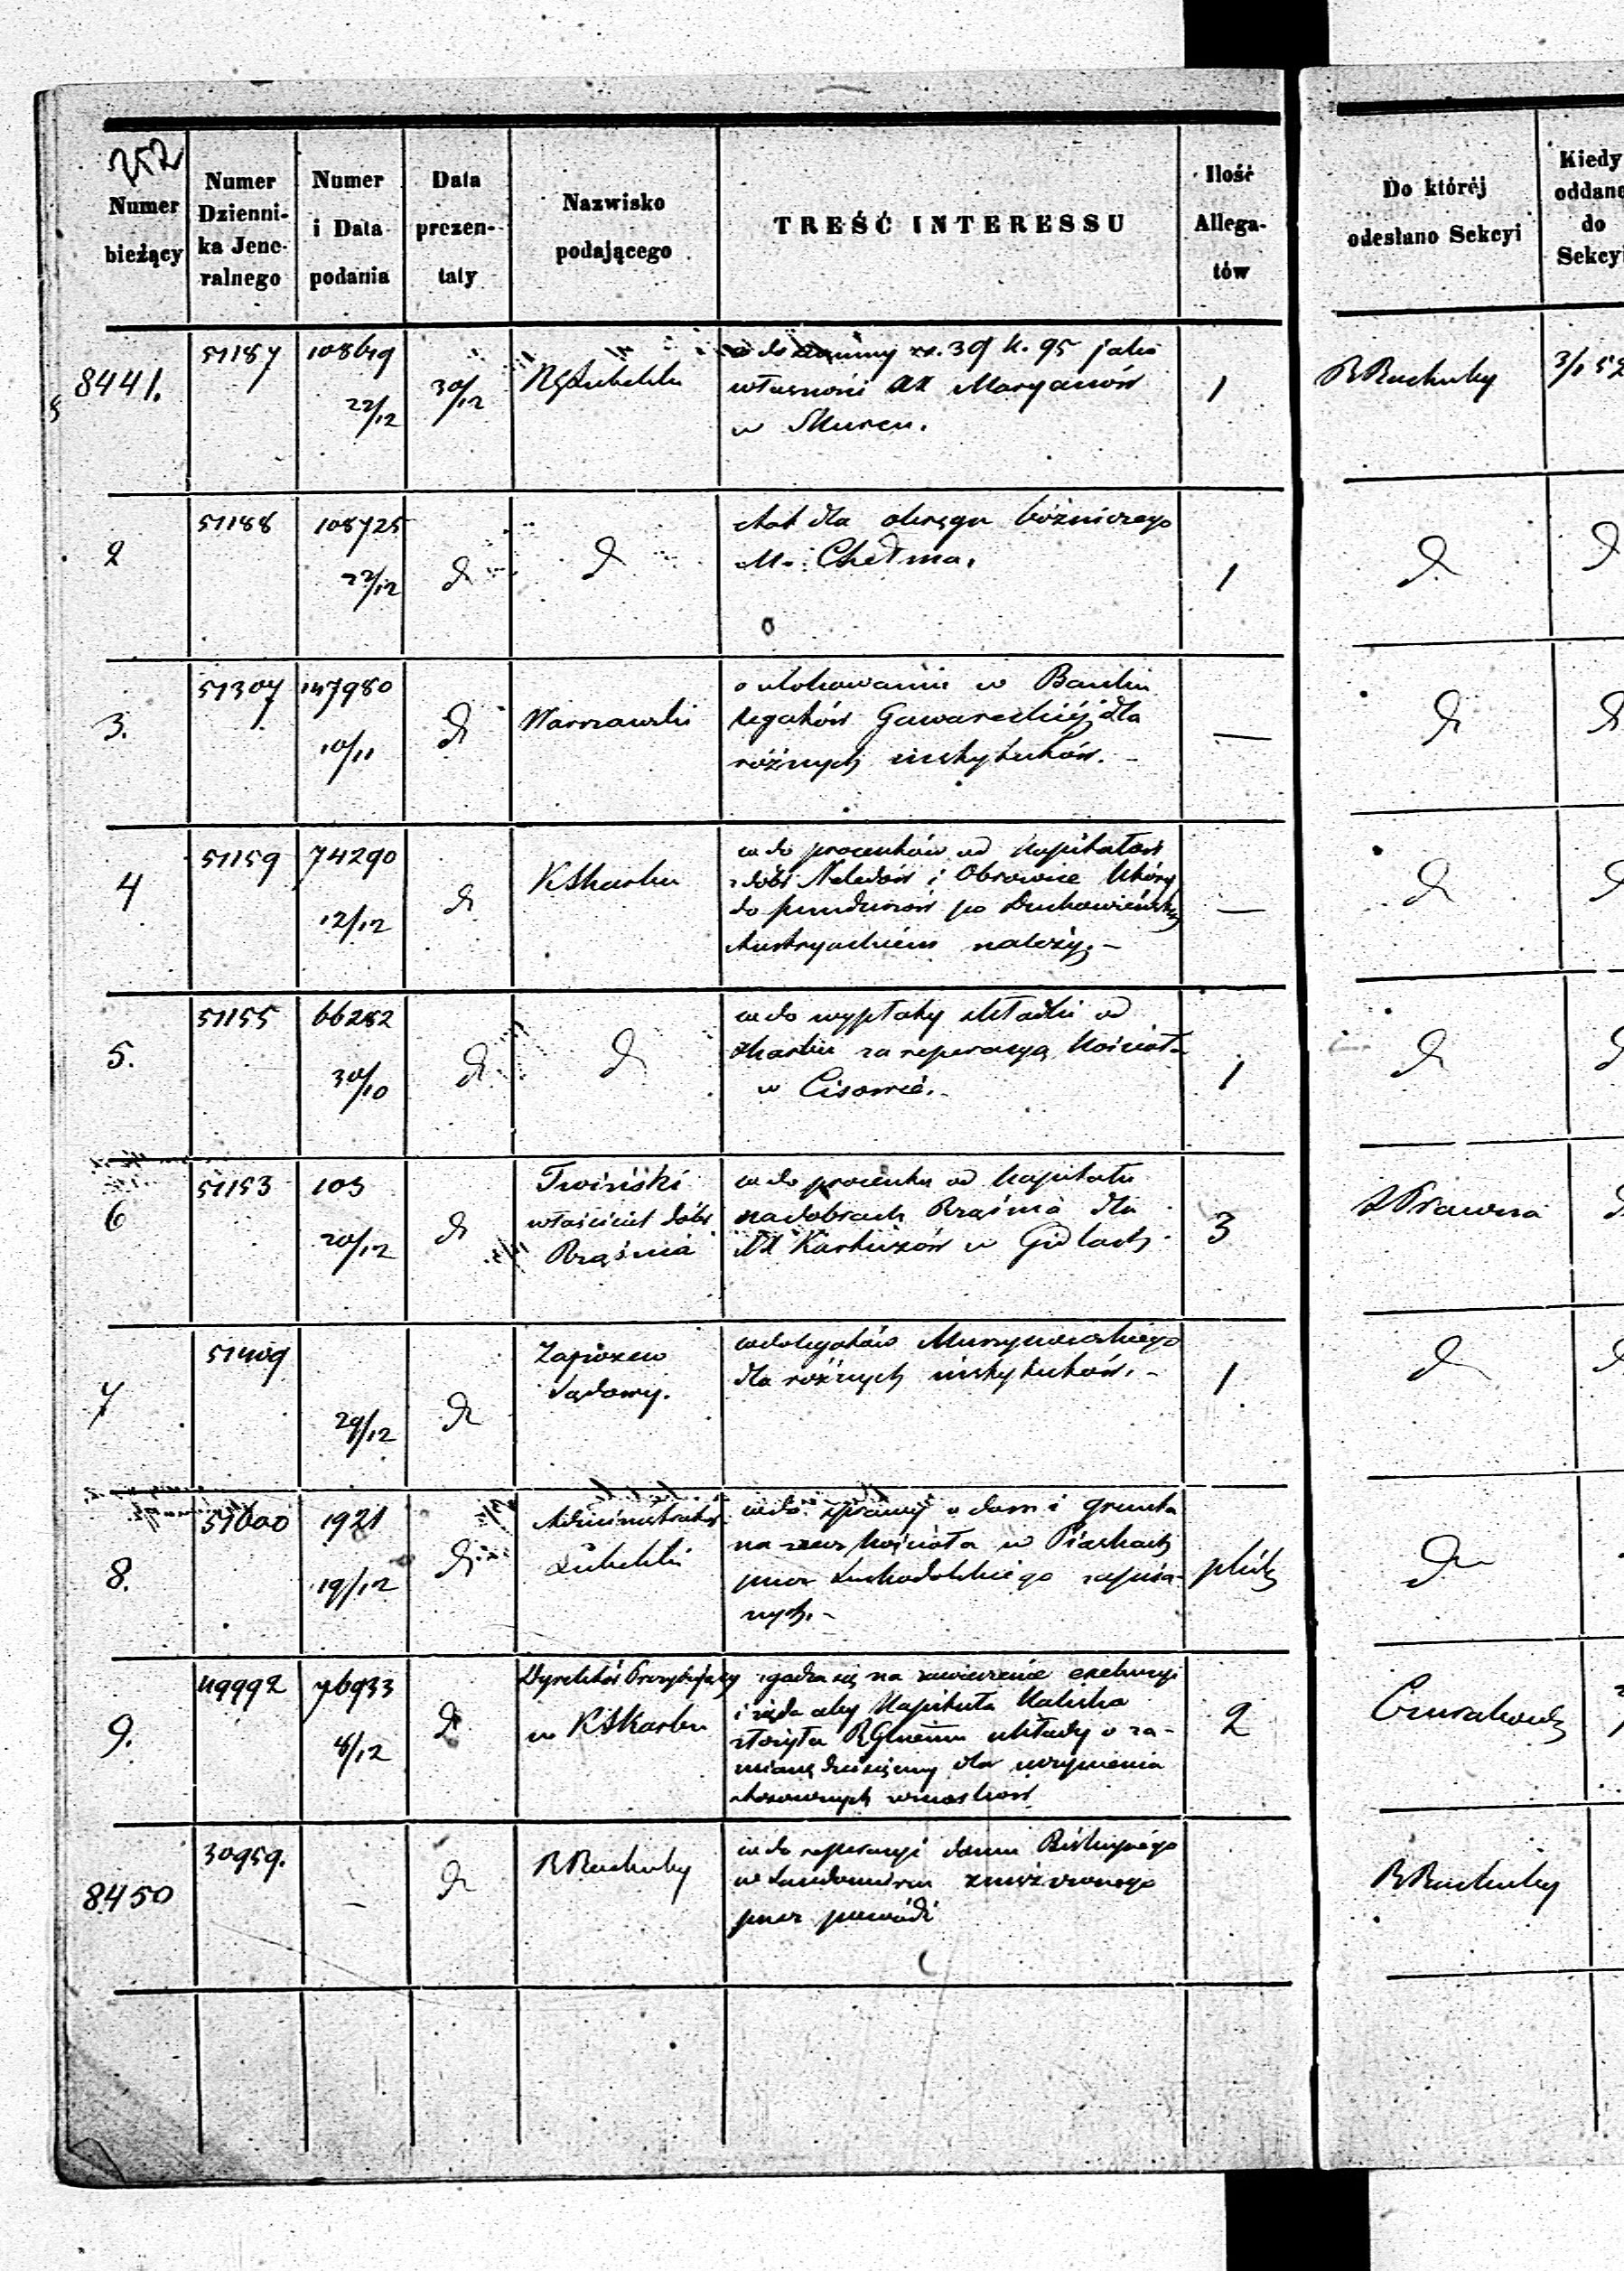 252
Numer
bieżący
Numer
Dzienni-
ka Jene-
ralnego
Numer
i Data
podania
Data
prezen-
taty
Nazwisko
podającego
TREŚĆ INTERESSU
Ilość
Allega-
tów
Do któréj
odesłano Sekcyi
Kiedy
oddano
do
Sekcyi
8441.
51187
108619
22/12
30/12
RGLubelski
39 k. 95 jako
własności XX Maryanów
w Skurcu.
1
R Rachuby
3/1 52
2
51188
108725
22/12
d
d
etat dla okręgu bóżniczego
M. Chełma.
1
d
d
3.
51307
147980
10/11
d
Warszawski
o ulokowaniu w Banku
legatów Gawareckiéj dla
różnych instytutów. -
—
d
d
4
51159
74290
12/12
d
KSkarbu
wedo procentów od kapitałów
z dóbr i Obrowice który
do funduszów po Duchowieństwie
Austryackiem należy. -
—
d
d
5.
51155
66282
30/10
d
d
wedo wypłaty składki od
Skarbu za reperacyą kościoła
w Cisowie. -
1
d
d
6
51153
103
20/12
d
właściciel dóbr
Rząśnia
wedo procentu od kapitału
na dobrach Rząśnia dla
XX Kartuzów w Gidlach
3
S Prawna
d
7
51409
29/12
d
Zapozew
Sądowy.
wedo legatów
dla różnych instytutów. -
1
d
d
8.
51000
1921
19/12
d
Administrator
Lubelski
wedo sprawy o dom i grunta
na rzecz kościoła w Piaskach
przez Suchodolskiego zapisa-
nych. -
plik
d
9.
49992
76933
8/12
d
Dyrektor Prezydujący
w KSkarbu
zgadza się na zawieszenie exekucyi
i żąda aby Kapituła Kaliska
złożyła układy o za-
mianę dziesięciny dla uczynienia
stosownych wniosków
2
8450
30959.
—
d
R Rachuby
wedo reperacyi domu Biskupiego
w Sandomierzu zniszczonego
przez powódź
R Rachuby